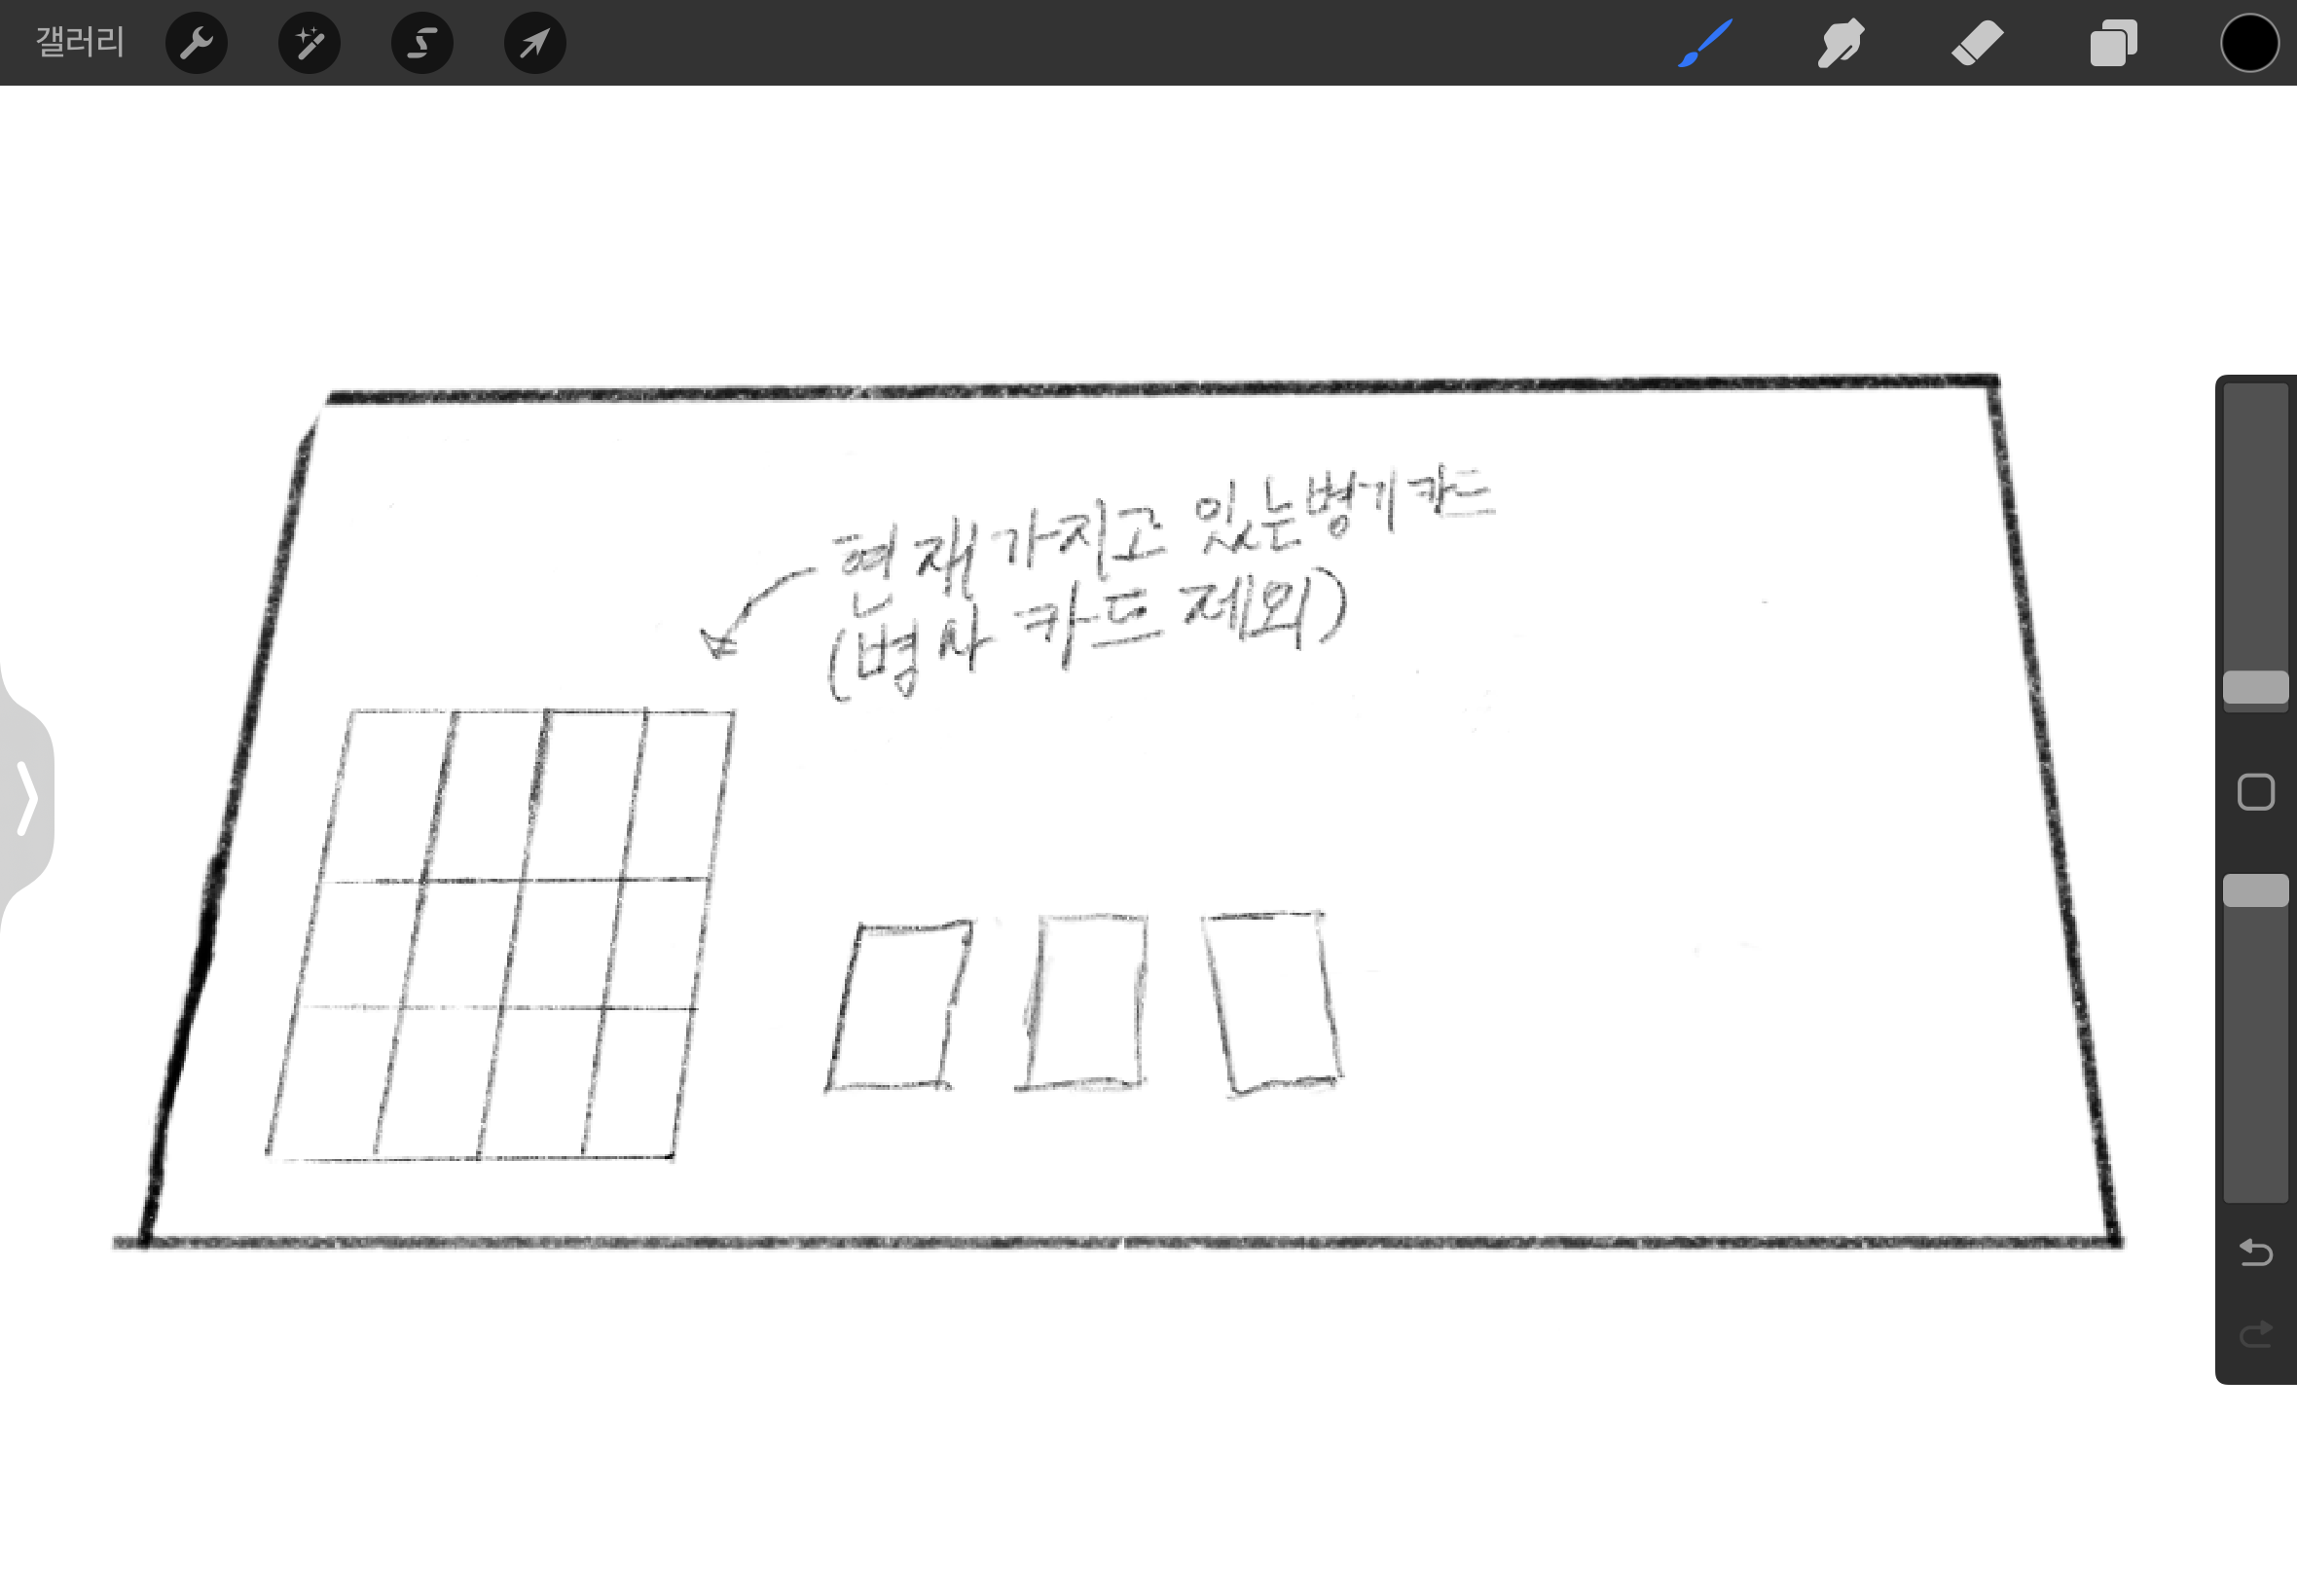 갤러리
현재 가지고 있는 병기 카드
(병사 카드 제외)